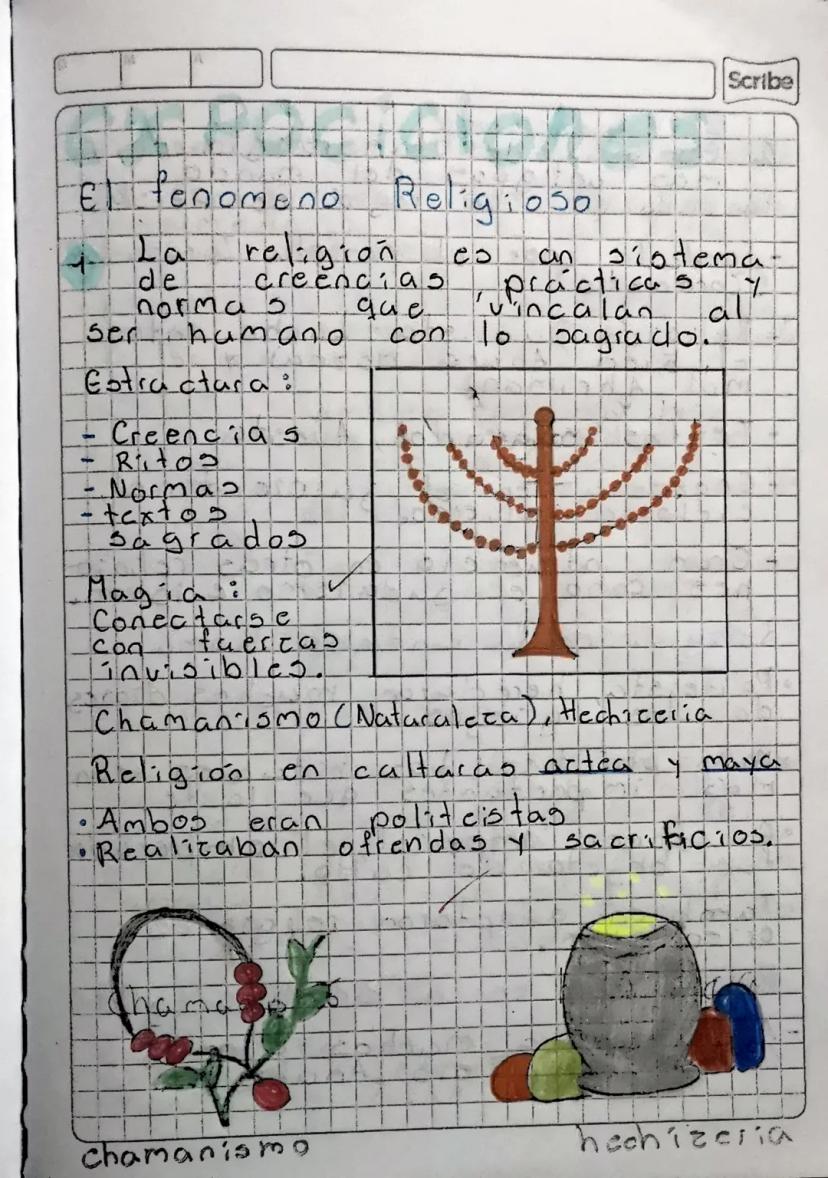 Scribe
Expociciones
El fenomeno Religioso
1 La religión es un sistema
de creencias, prácticas y
normas que vinculan al
ser humano con lo sagrado.
Estructura:
- Creencias
- Ritos
- Normas
- textos
sagrados
Magia:
Conectarse
con fuerzas
invisibles.
Chamanismo (Naturaleza), Hechiceria
Religión en culturas aztea y maya
• Ambos eran politeistas
• Realizaban ofrendas y sacrificios.
chamanismo
hechizeria